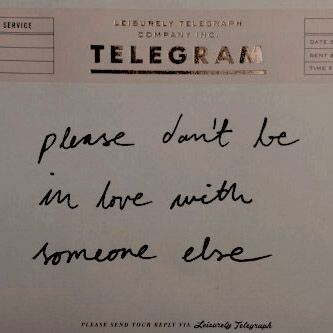 SERVICE
LEISURELY TELEGRAPH
COMPANY INC.
TELEGRAM
please don't be
in love with
someone else
PLEASE SEND YOUR REPLY VIA Leisurely Telegraph